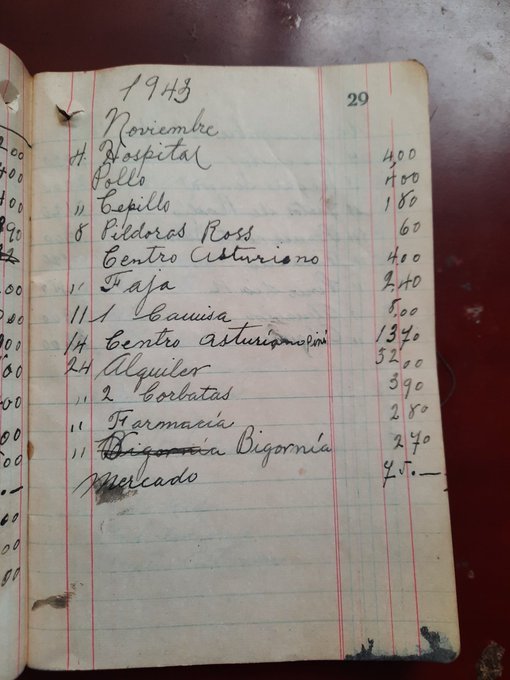 29
1943
Noviembre
4. Hospital 4.00
Pollo 4.00
" Cepillo 1 80
8 Pildoras Ross 60
Centro Asturiano 4.00
" Faja 2.40
11 1 Camisa 8.00
14 Centro Asturiano 13 70
24 Alquiler 32 00
" 2 Corbatas 3 90
" Farmacía 2 80
" Bigornía Bigornía 2 70
Mercado 75.—